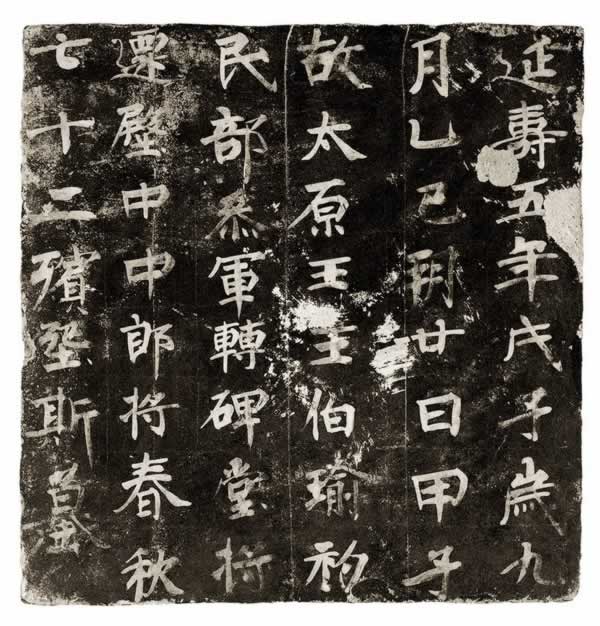 延壽五年戊子歲九
月乙巳朔廿日甲子
故太原王王伯瑜初
民部叅軍轉碑堂將
遷壂中中郎將春秋
七十二殯塟斯墓